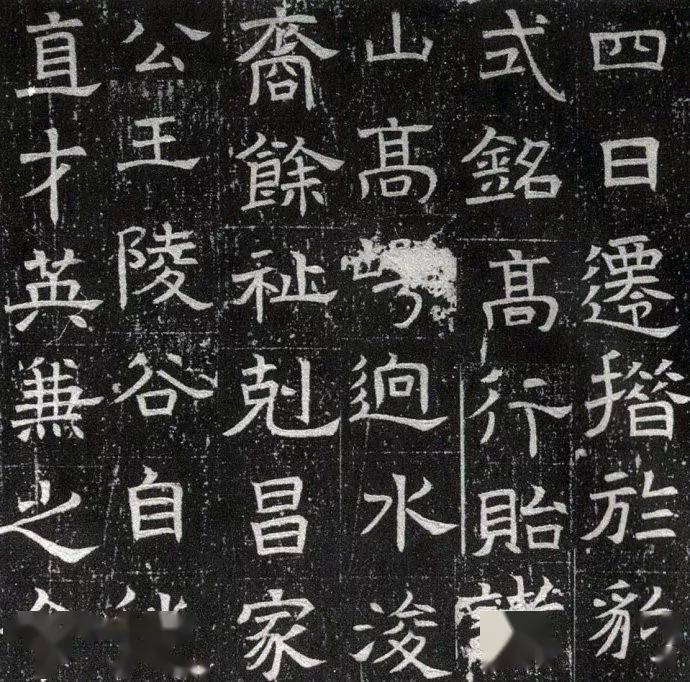 四日遷措於豹
式銘高行貽
山高迥水浚
裔餘祉剋昌家
公王陵谷自
直才英兼之